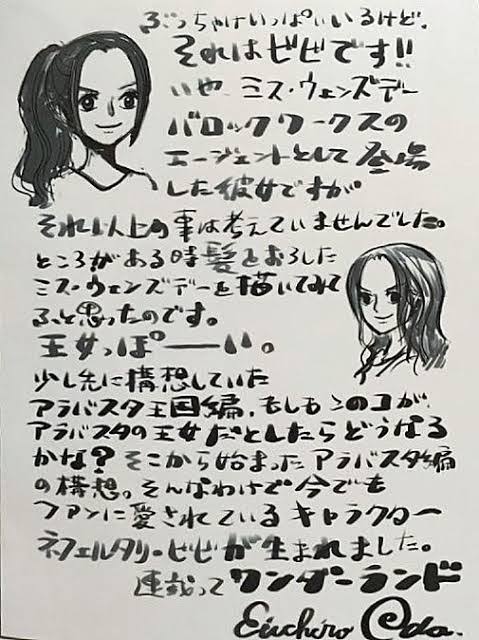 ぶっちゃけいっぱいいるけど、
それはビビです!!
いや、ミス・ウェンズデー
バロックワークスの
エージェントとして登場
した彼女ですが。
それ以上の事は考えていませんでした。
ところがある時髪をおろした
ミス・ウェンズデーを描いてみて
ふと思ったのです。
王女っぽーい。
少し先に構想していた
アラバスタ王国編、もしもこのコが、
アラバスタの王女だとしたらどうなる
かな?そこから始まったアラバスタ編
の構想。そんなわけで今でも
ファンに愛されているキャラクター
ネフェルタリ・ビビが生まれました。
連載って ワンダーランド
Eiichiro Oda.